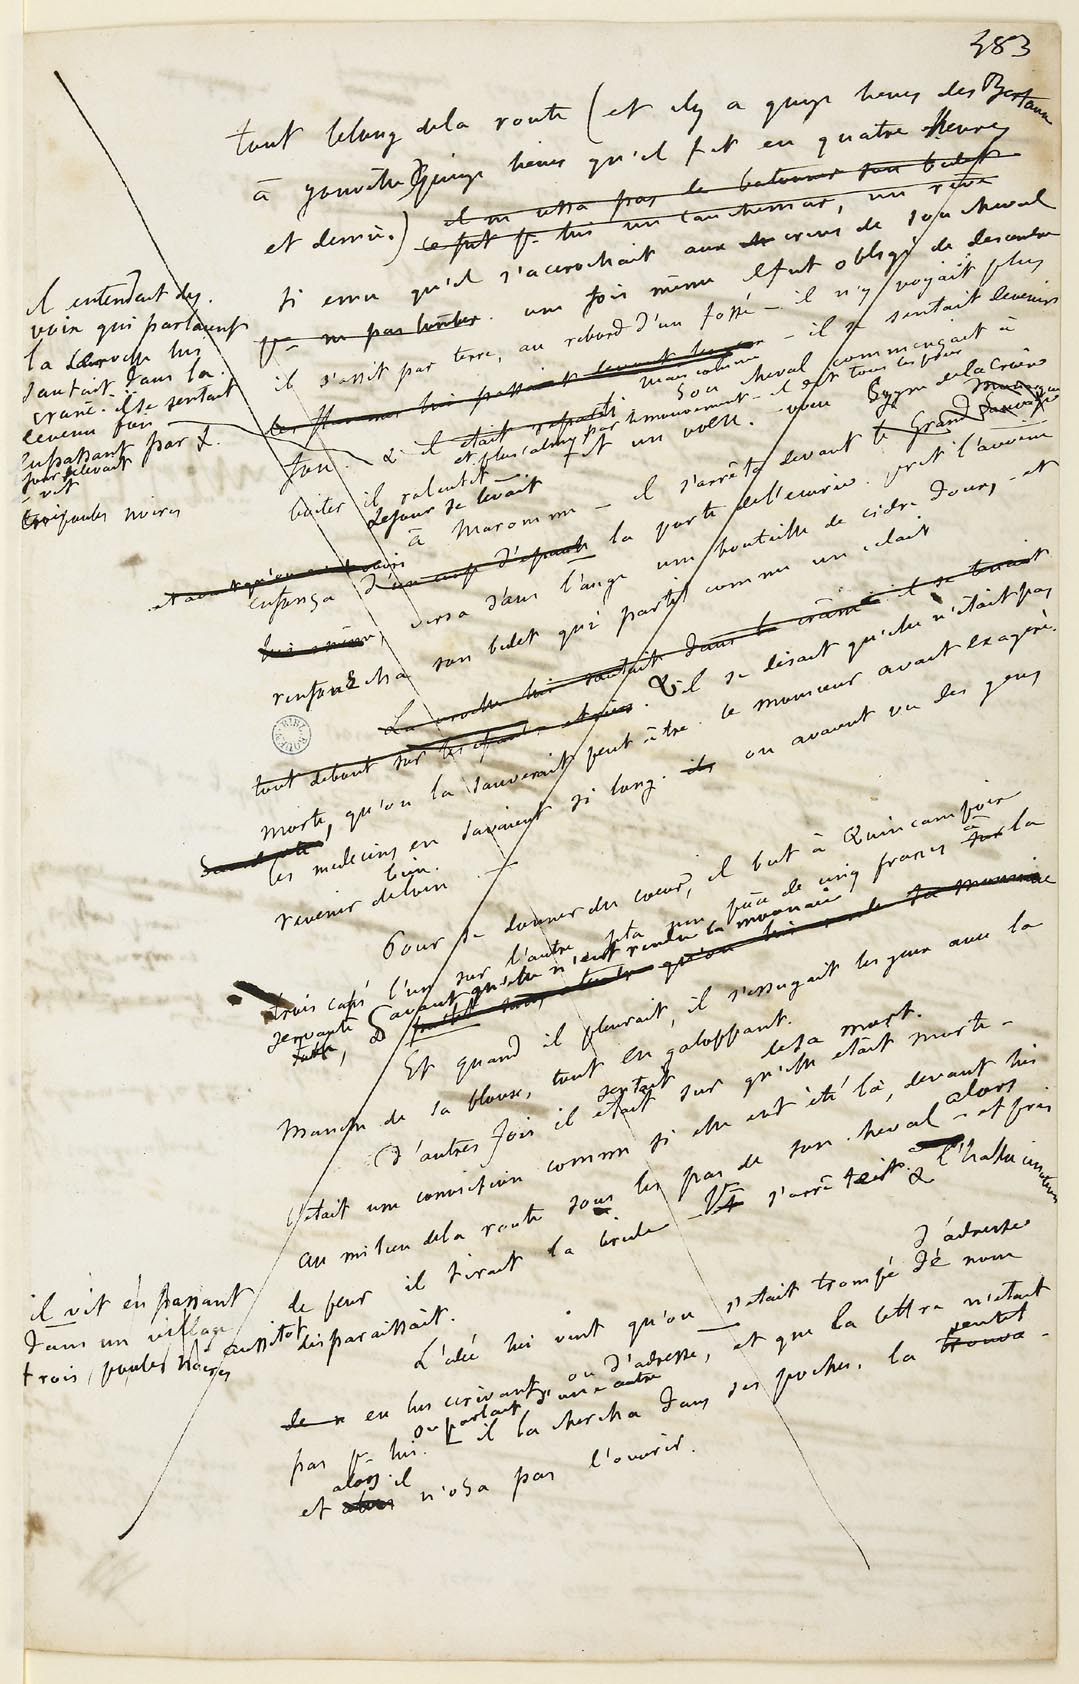 383
tout le long de la route (et il y a quinze lieues des Bertaux
à quinze lieues qu'il fit en quatre heures
et demie.) il ne cessa pas de batonner son bidet
ce fut pr lui un cauchemar, un rêve
si ému qu'il s'accrochait aux crins de son cheval
pr ne pas tomber. une fois même il fut obligé de descendre
il s'assit par terre, au rebord d'un fossé - il n'y voyait plus
- il se sentait devenir
mais calmé
fou. & il était reparti Son cheval commençait à
et plus calme par le mouvement - il eut tous les pour
boiter il ralentit fit un voeu. vieux Byzme de la Croix
Le jour se levait
à Maromme - il s'arrêta devant le Grand Sauvage
et avant qu'on
enfonça d'un coup d'épaule la porte de l'écurie. prit l'avoine
lui même, versa dans l'auge une bouteille de cidre doux, et
renfourcha son bidet qui partit comme un éclair
La cloche lui sautait dans le crâne il se tenait
tout debout sur les étriers. & il se disait qu'elle n'était pas
morte, qu'on la sauverait peut être. le monsieur avait exagéré.
les medecins en savaient si long. ils on avaient vu des gens
bien.
revenir de loin
Pour se donner du coeur, il but à Quincampoix
trois cafés l'un sur l'autre jeta une pièce de cinq francs sur à la
servante & avant qu'elle n'eut rendu la monnaie
Et quand il pleurait, il s'essuyait les yeux avec la
manche de sa blouse, tout en galoppant.
sentait de sa mort.
D'autres fois il était sur qu'elle était morte -
c'était une conviction comme si elle eut été là, devant lui
alors
au milieu de la route sous les pas de son cheval - et pris
de peur il tirait la bride s'arrêtait. & l'hallucination
aussitot disparaissait.
d'adresse
L'idée lui vint qu'on s'était trompé de nom
de n en lui écrivant ou d'adresse, et que la lettre n'était
ou parlait d'une autre
par pr lui. - il la chercha dans ses poches. la sentit trouva -
alors il
et alors n'osa pas l'ouvrir.
il entendait des
voix qui parlaient
la cloche lui
sautait dans la
crane. il se sentait
devenu fou
en passant par
jour se levait
- vit
trois poules noires
il vit en passant
dans un village
trois poules noires